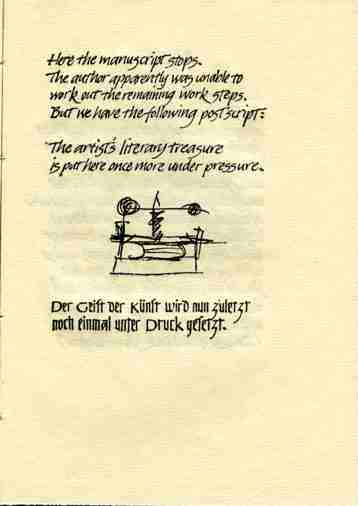 Here the manuscript stops.
The author apparently was unable to
work out the remaining work steps.
But we have the following postscript:
The artist's literary treasure
is put here once more under pressure.
Der Geist der Künst wird nun zuletzt
noch einmal unter Druck gesetzt.